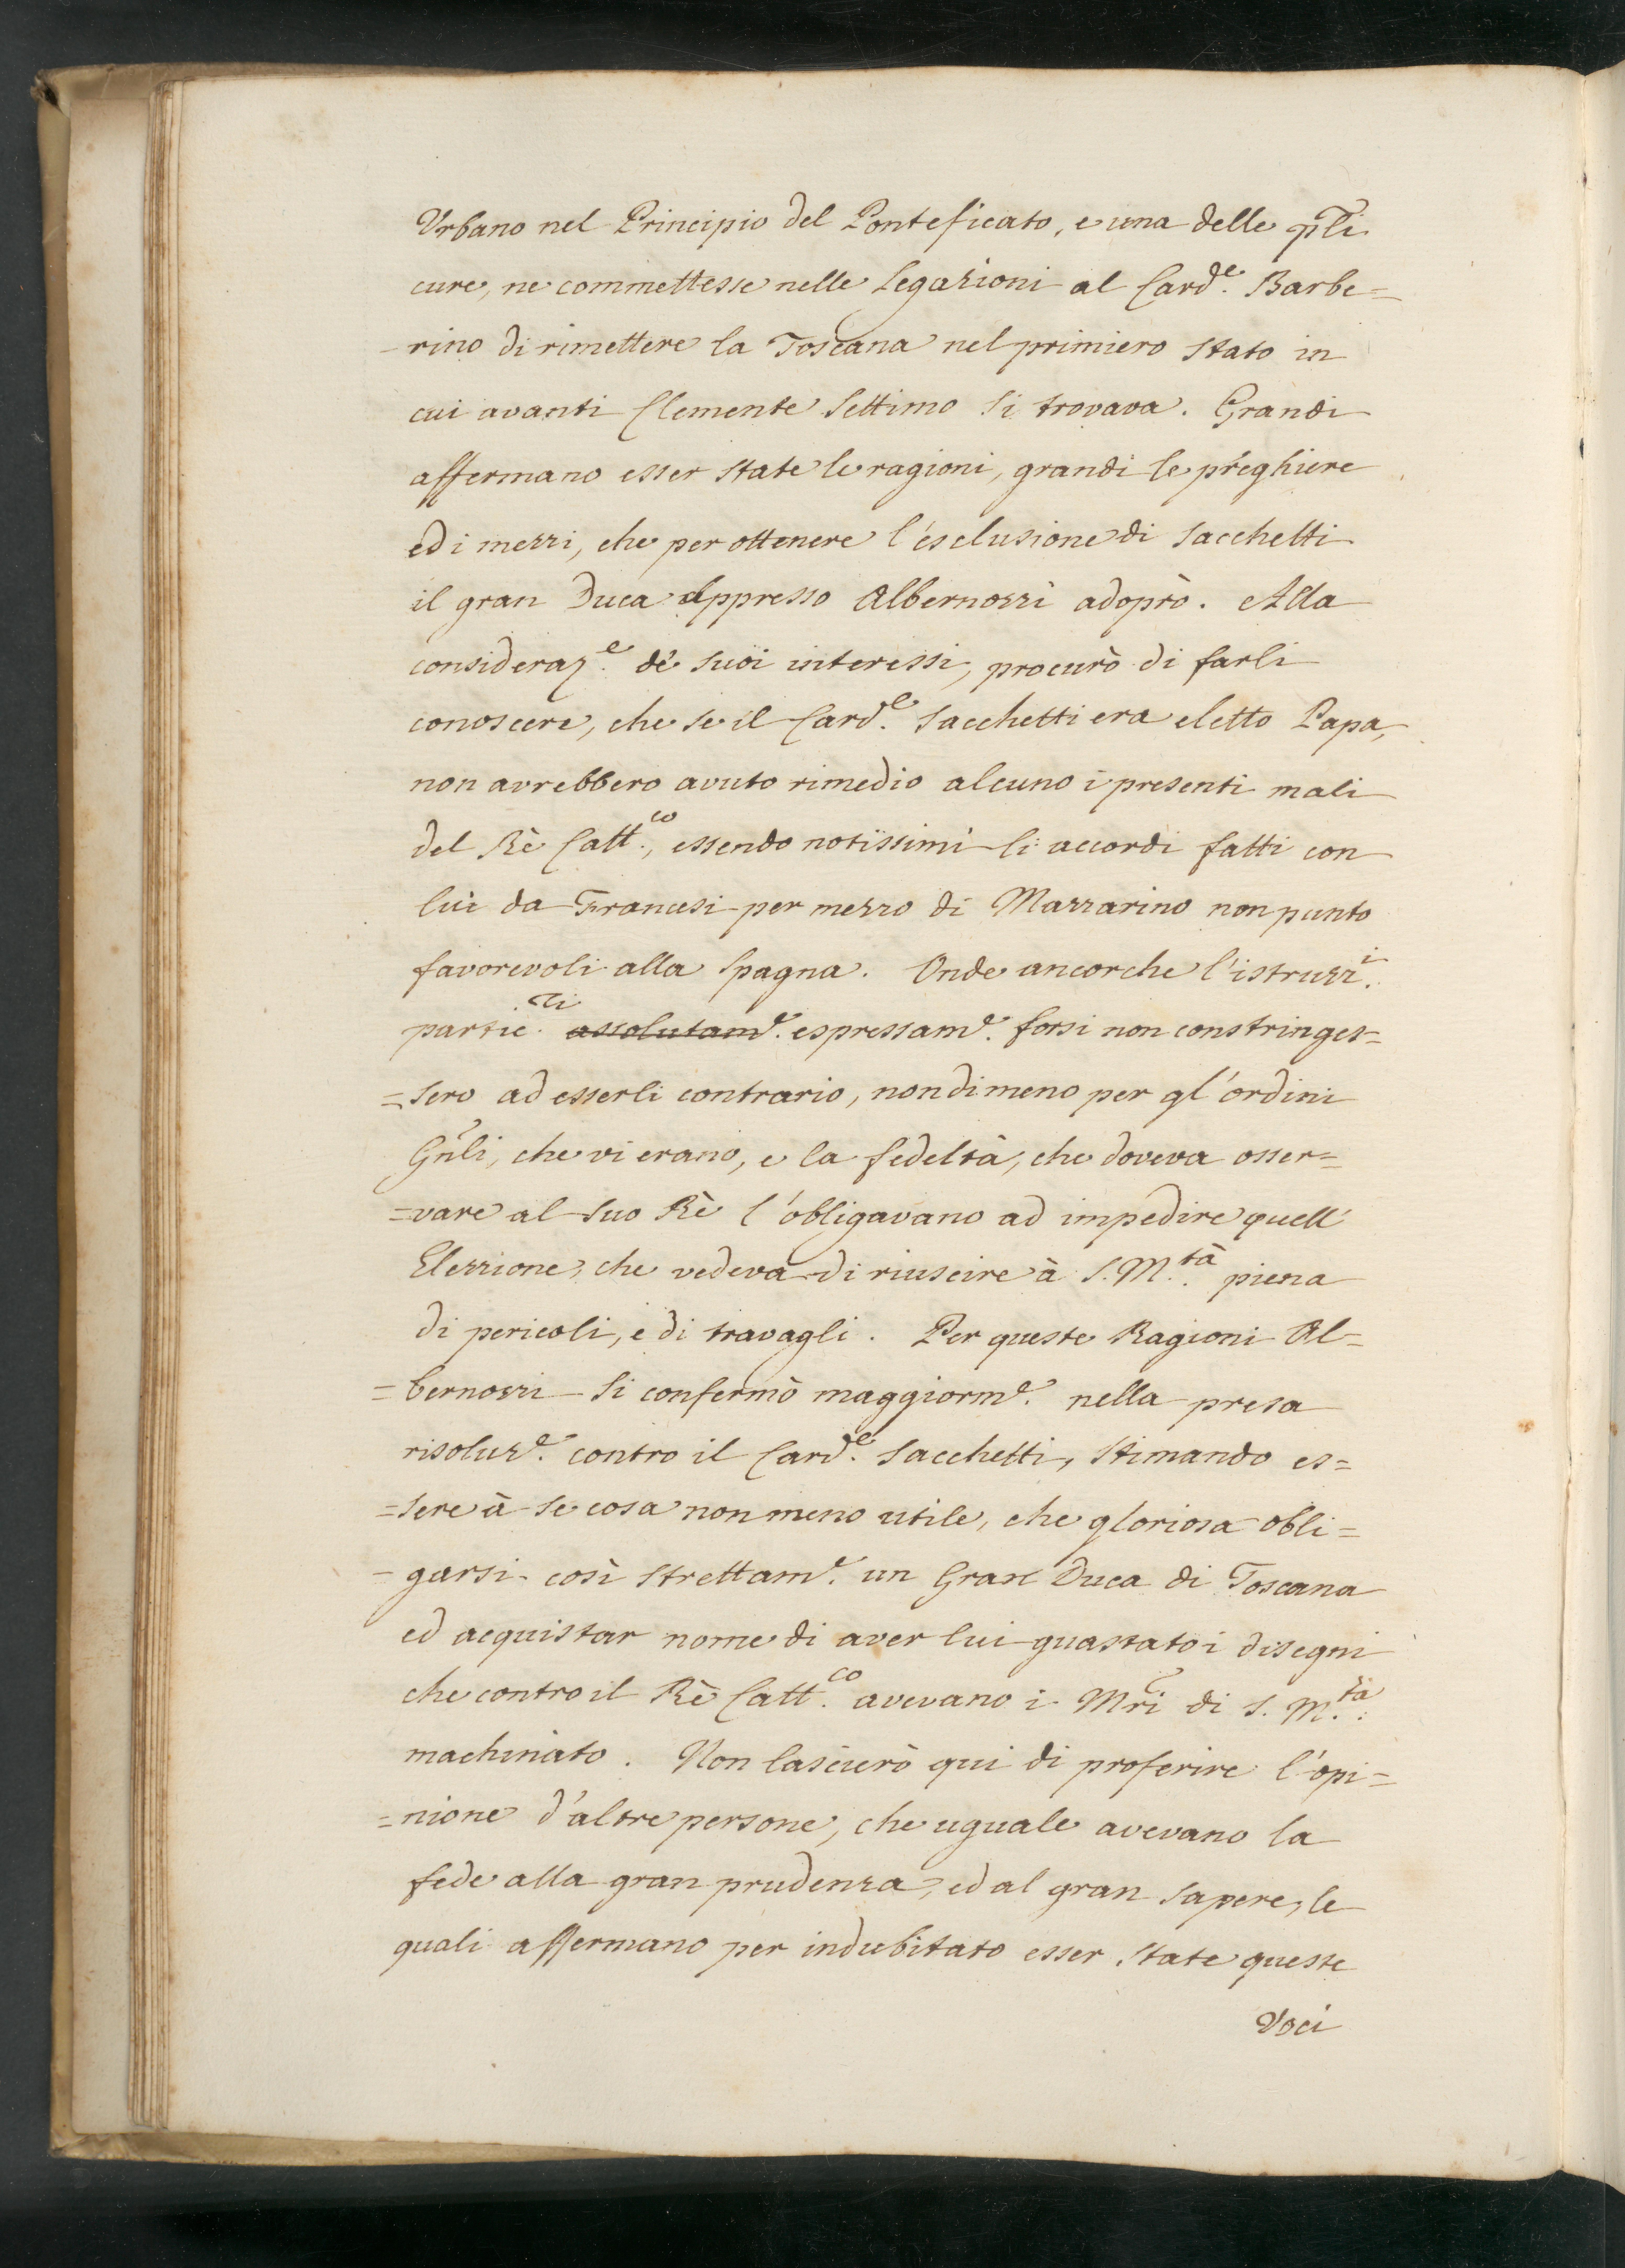 Urbano nel Principio del Ponteficato, e una delle pl̃i
cure, ne commettesse nelle Legazioni al Card.e Barbe=
-rino di rimettere la Toscana nel primiero stato in
cui avanti Clemente Settimo si trovava. Grandi
affermano esser state le ragioni, grandi le preghiere
ed i mezzi, che per ottenere l'esclusione di Sacchetti
il gran Duca appresso Albernozzi adoprò. Alla
consideraz.e de' suoi interessi, procurò di farli
conoscere, che se il Card.e Sacchetti era eletto Papa,
non avrebbero avuto rimedio alcuno i presenti mali
del Rè Catt.co, essendo notissimi li accordi fatti con
lui da Francesi per mezzo di Mazzarino non punto
favorevoli alla Spagna. Onde ancorche l'istruzz.i
partic.ri assolutam.e espressam.e forsi non constringes=
=sero ad esserli contrario, nondimeno per gl'ordini
Gñli, che vi erano, e la fedeltà, che doveva osser=
=vare al suo Rè l'obligavano ad impedire quell'
Elezzione, che vedeva di riuscire à S. M.tà piena
di pericoli, e di travagli. Per queste Ragioni Al=
=bernozzi si confermò maggiorm.e nella presa
risoluz.e contro il Card.e Sacchetti, stimando es=
=sere à se cosa non meno utile, che gloriosa obli=
-garsi così strettam.e un Gran Duca di Toscana
ed acquistar nome di aver lui guastato i disegni
che contro il Rè Catt.co avevano i Mr̃i di S. M.tà
machinato. Non lascierò qui di proferire l'opi=
=nione d'altre persone, che uguale avevano la
fede alla gran prudenza, ed al gran sapere, le
quali affermano per indubitato esser state queste
Voci